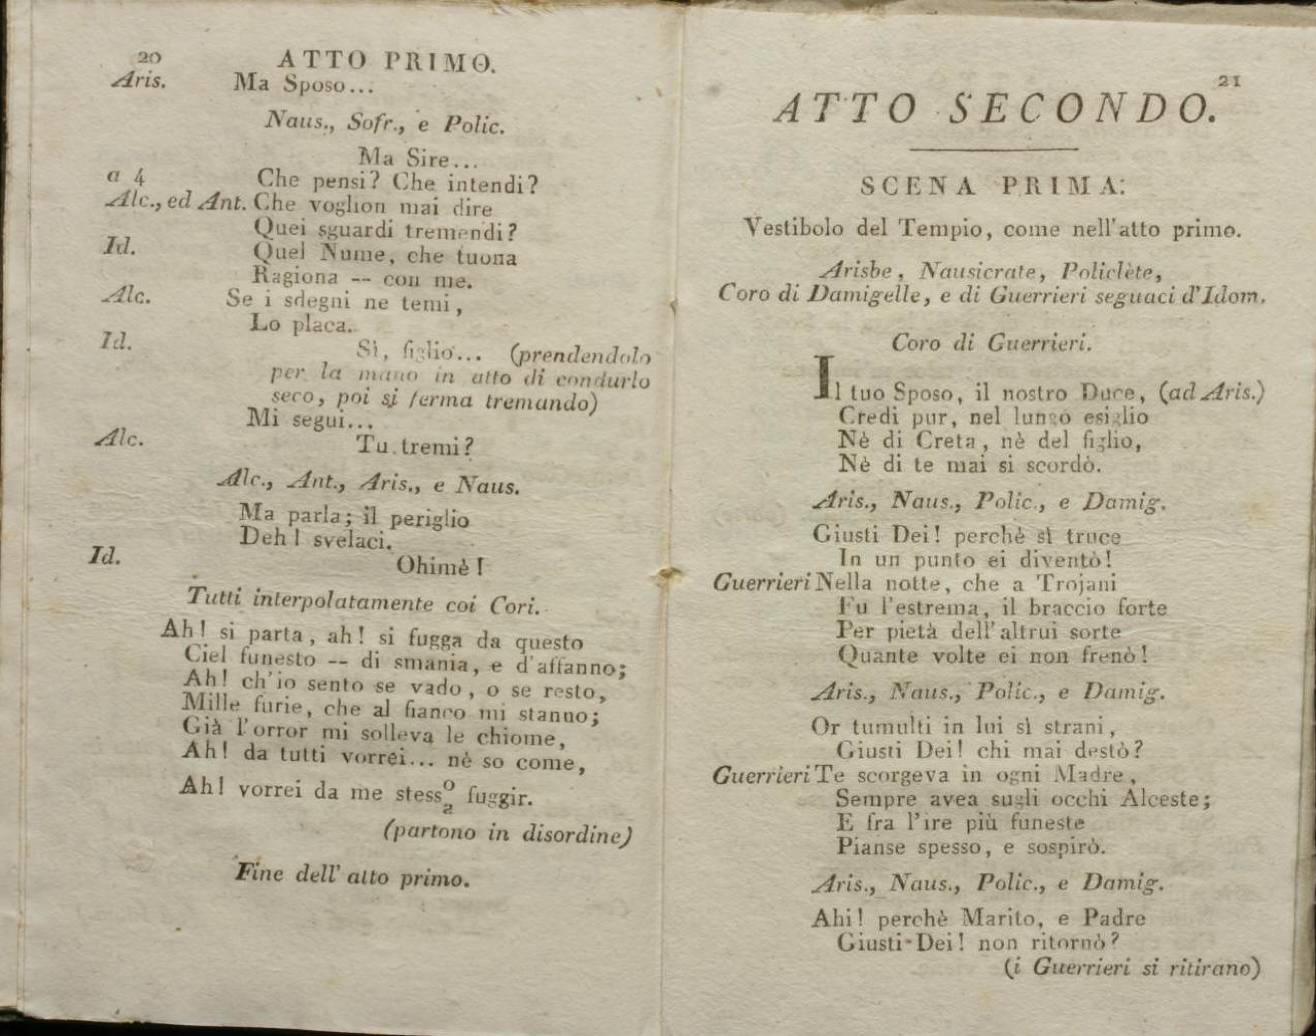 20 ATTO PRIMO.
Aris. Ma Sposo...
Naus., Sofr., e Polic.
Ma Sire...
a 4 Che pensi? Che intendi?
Alc., ed Ant. Che voglion mai dire
Quei sguardi tremendi?
Id. Quel Nume, che tuona
Ragiona -- con me.
Alc. Se i sdegni ne temi,
Lo placa.
Id. Sì, figlio... (prendendolo
per la mano in atto di condurlo
seco, poi si ferma tremando)
Mi segui...
Alc. Tu tremi?
Alc., Ant., Aris., e Naus.
Ma parla; il periglio
Deh! svelaci.
Id. Ohimè!
Tutti interpolatamente coi Cori.
Ah! si parta, ah! si fugga da questo
Ciel funesto -- di smania, e d'affanno;
Ah! ch'io sento se vado, o se resto,
Mille furie, che al fianco mi stanno;
Già l'orror mi solleva le chiome,
Ah! da tutti vorrei... nè so come,
Ah! vorrei da me stess o/a fuggir.
(partono in disordine)
Fine dell' atto primo.
21
ATTO SECONDO.
SCENA PRIMA.
Vestibolo del Tempio, come nell'atto primo.
Arisbe, Nausicrate, Policlète,
Coro di Damigelle, e di Guerrieri seguaci d'Idom.
Coro di Guerrieri.
Il tuo Sposo, il nostro Duce, (ad Aris.)
Credi pur, nel lungo esiglio
Nè di Creta, nè del figlio,
Nè di te mai si scordò.
Aris., Naus., Polic., e Damig.
Giusti Dei! perchè sì truce
In un punto ei diventò!
Guerrieri Nella notte, che a Trojani
Fu l'estrema, il braccio forte
Per pietà dell'altrui sorte
Quante volte ei non frenò!
Aris., Naus., Polic., e Damig.
Or tumulti in lui sì strani,
Giusti Dei! chi mai destò?
Guerrieri Te scorgeva in ogni Madre,
Sempre avea sugli occhi Alceste;
E fra l'ire più funeste
Pianse spesso, e sospirò.
Aris., Naus., Polic., e Damig.
Ahi! perchè Marito, e Padre
Giusti Dei! non ritornò?
(i Guerrieri si ritirano)